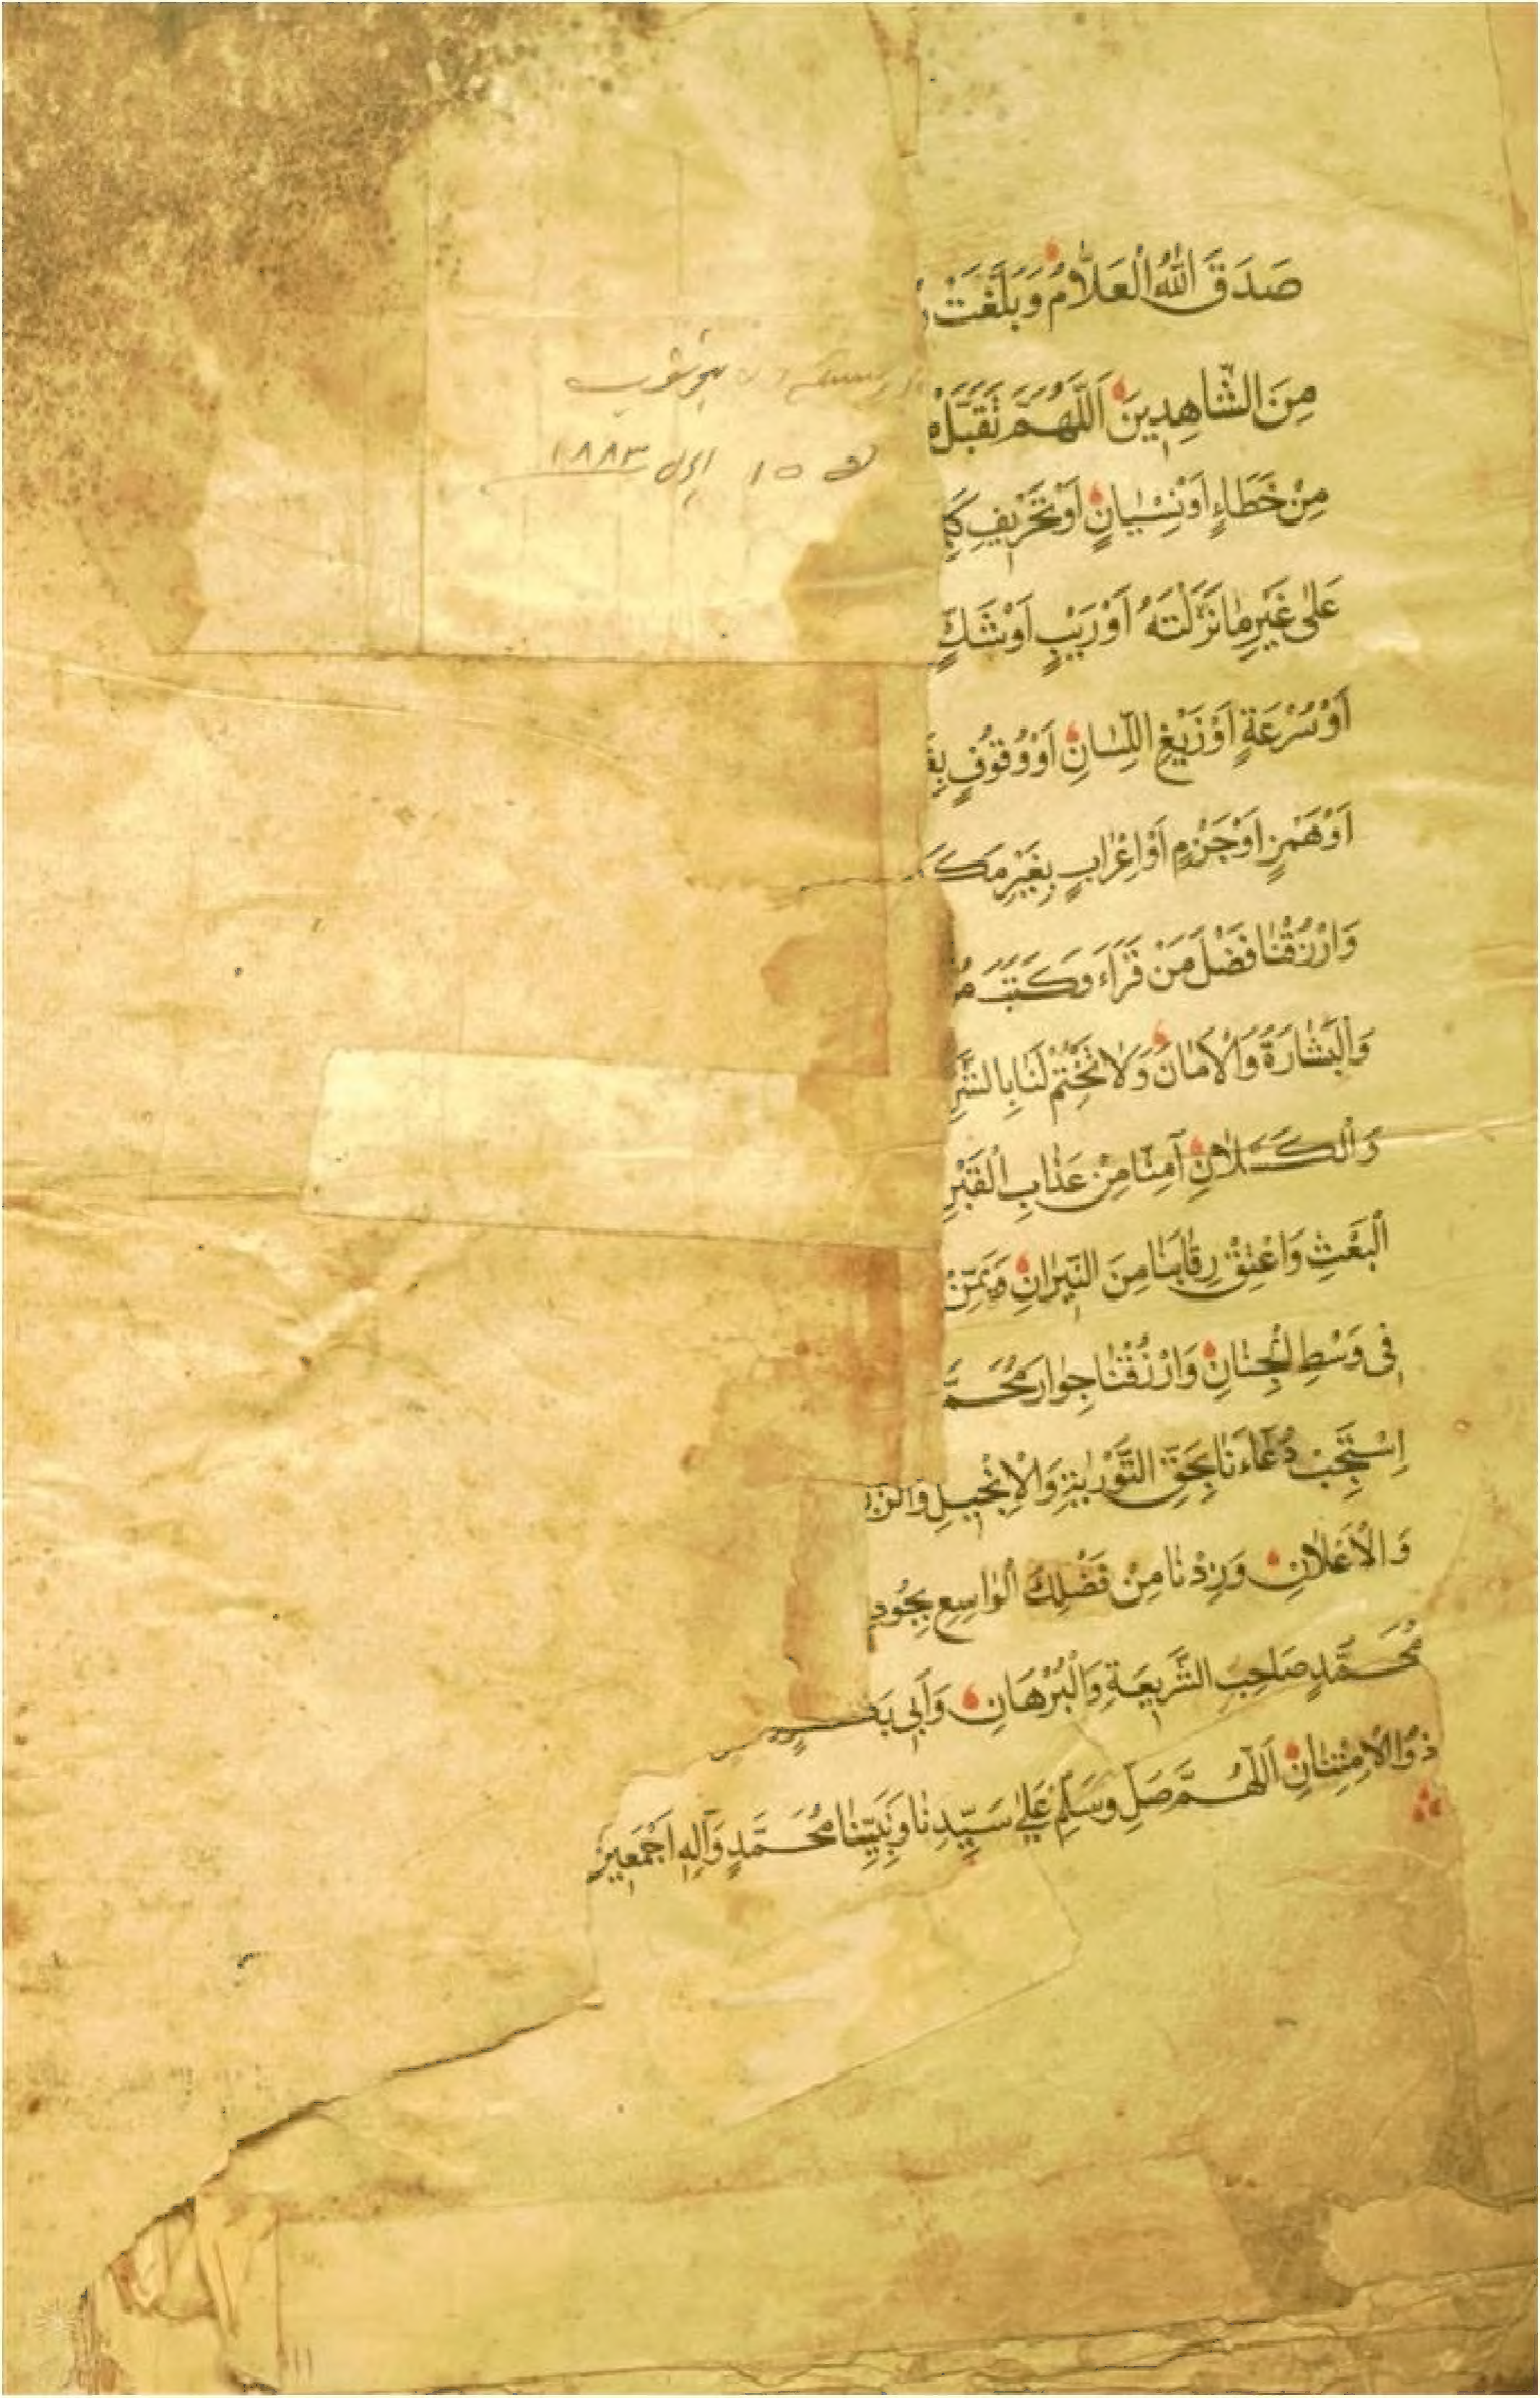 صَدَقَ اللّٰهُ الْعَلَّامُ وَبَلَّغَتْ
مِنَ الشَّاهِدِينَ اَللّٰهُمَّ تَقَبَّلْ
مِنْ خَطَاءٍ اَوْ نِسْيَانٍ اَوْ تَحْرِيفِ
عَلٰى غَيْرِ مَا نَزَّلْتَهُ اَوْ رَيْبٍ اَوْ شَكٍّ
اَوْ سُرْعَةٍ اَوْ زَيْغِ اللِّسَانِ اَوْ وُقُوفٍ
اَوْ هَمْزٍ اَوْ جَزْمٍ اَوْ اِعْرَابٍ بِغَيْرِ
وَارْزُقْنَا فَضْلَ مَنْ قَرَاَءَ وَكَتَبَ
وَالْبَشَارَةُ وَالْاَمَانَ وَلَا تَخْتِمْ لَنَا بِالشَّرِّ
وَالْكَسَلَانِ اٰمِنَّا مِنْ عَذَابِ الْقَبْرِ
الْبَعْثِ وَاعْتِقْ رِقَابَنَا مِنَ النِّيرَانِ
فِى وَسْطِ الْجِنَانِ وَارْزُقْنَا جِوَارَ
اِسْتَجِبْ دُعَاءَنَا بِحَقِّ التَّوْرٰيةِ وَالْاِنْجِيلِ
وَالْاَعْلَانِ وَزِدْنَا مِنْ فَضْلِكَ الْوَاسِعِ بِجُودِ
مُحَمَّدٍ صَاحِبِ الشَّرِيعَةِ وَالْبُرْهَانِ وَاَبِى
ذُو الْاِمْتِنَانِ اَللّٰهُمَّ صَلِّ وَسَلِّمْ عَلٰى سَيِّدِنَا وَنَبِيِّنَا مُحَمَّدٍ وَآلِهِ اَجْمَعِينَ
١٥ ١٨٨٣